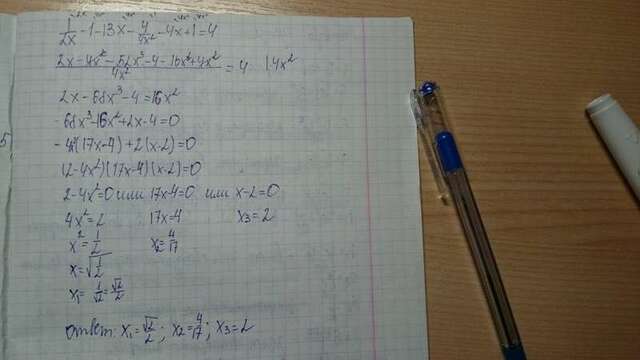 1/2x - 1 - 13x - 4/4x² - 4x + 1 = 4
(2x - 4x² - 52x³ - 4 - 16x³ + 4x²)/4x² = 4 | 4x²
2x - 68x³ - 4 = 16x²
- 68x³ - 16x² + 2x - 4 = 0
- 4x²(17x - 4) + 2(x - 2) = 0
(2 - 4x²)(17x - 4)(x - 2) = 0
2 - 4x² = 0 или 17x - 4 = 0 или x - 2 = 0
4x² = 2 17x = 4 x₃ = 2
x² = 1/2 x₂ = 4/17
x = √(1/2)
x₁ = 1/√2 = √2/2
ответ: x₁ = √2/2; x₂ = 4/17; x₃ = 2